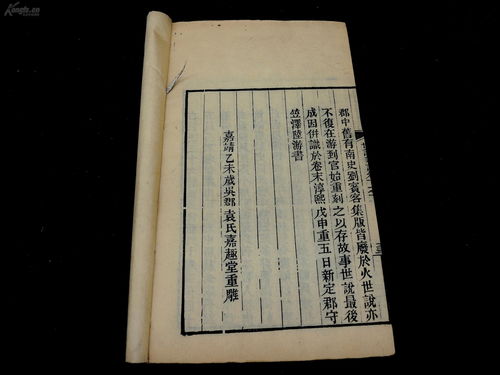 郡中舊有南史劉賓客集版皆廢於火世說亦
不復在游到官始重刻之以存故事世說最後
成因併識於卷末淳熙戊申重五日新定郡守
笠澤陸游書
嘉靖乙未歲吳郡袁氏嘉趣堂重雕